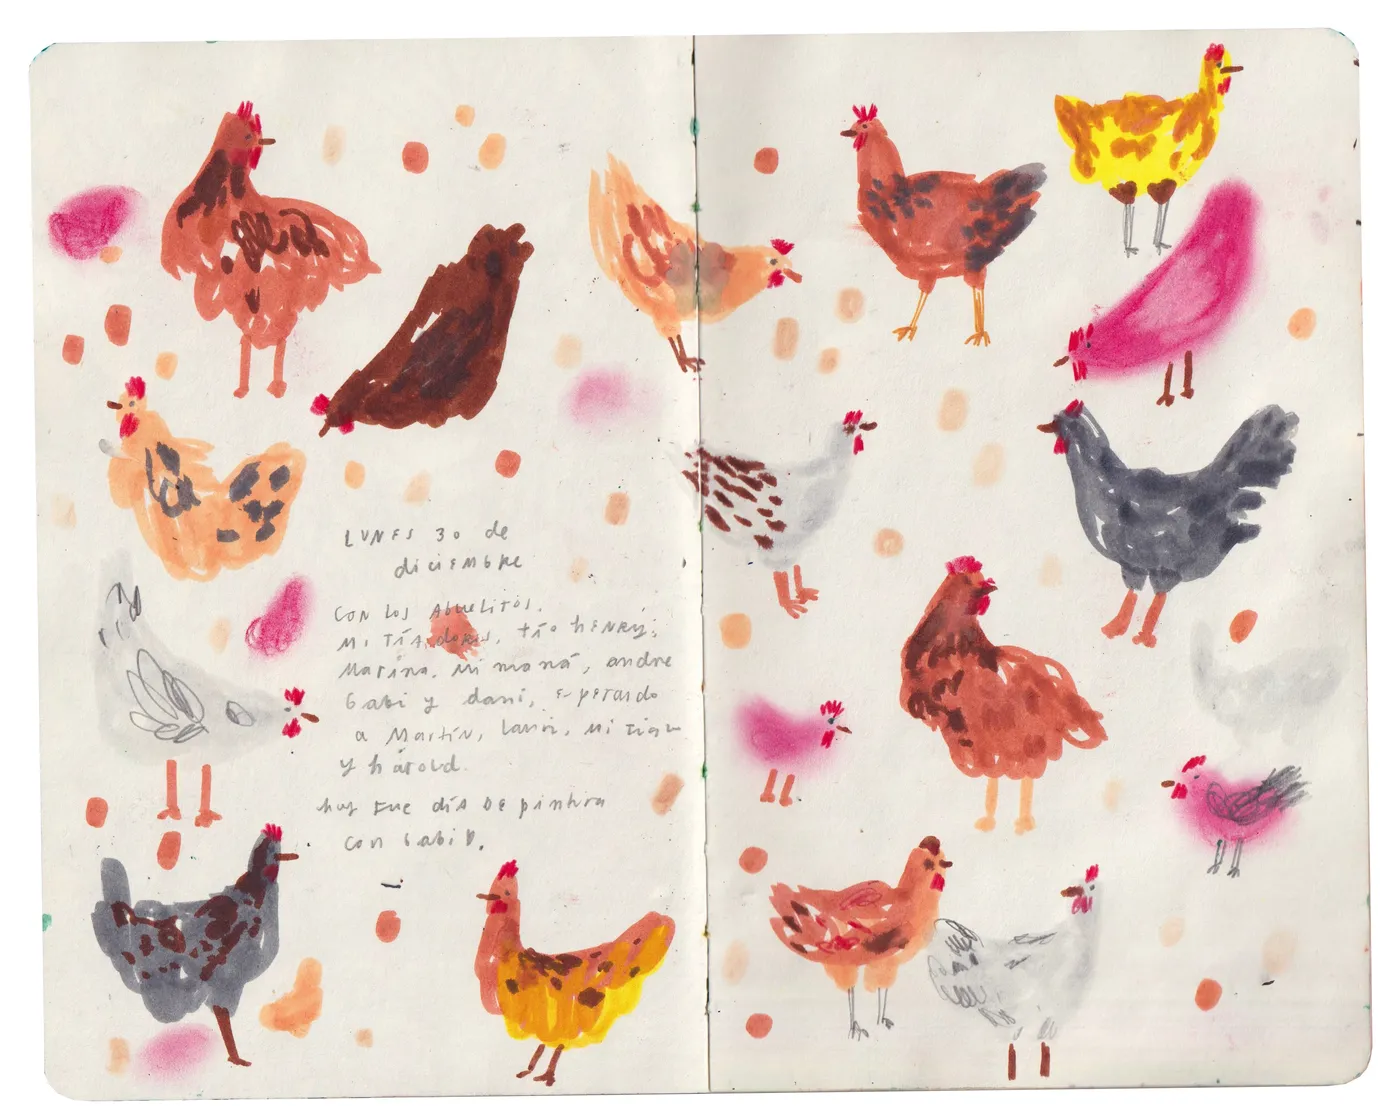 LUNES 30 de
diciembre
CON LOS Abuelitos,
Mi TíA doris, tío hENRy,
Marina, mi mamá, andre
Gabi y dani, esperando
a Martín, Laura, mi
y hárold.
hoy fue día DE pintura
con Gabi D.